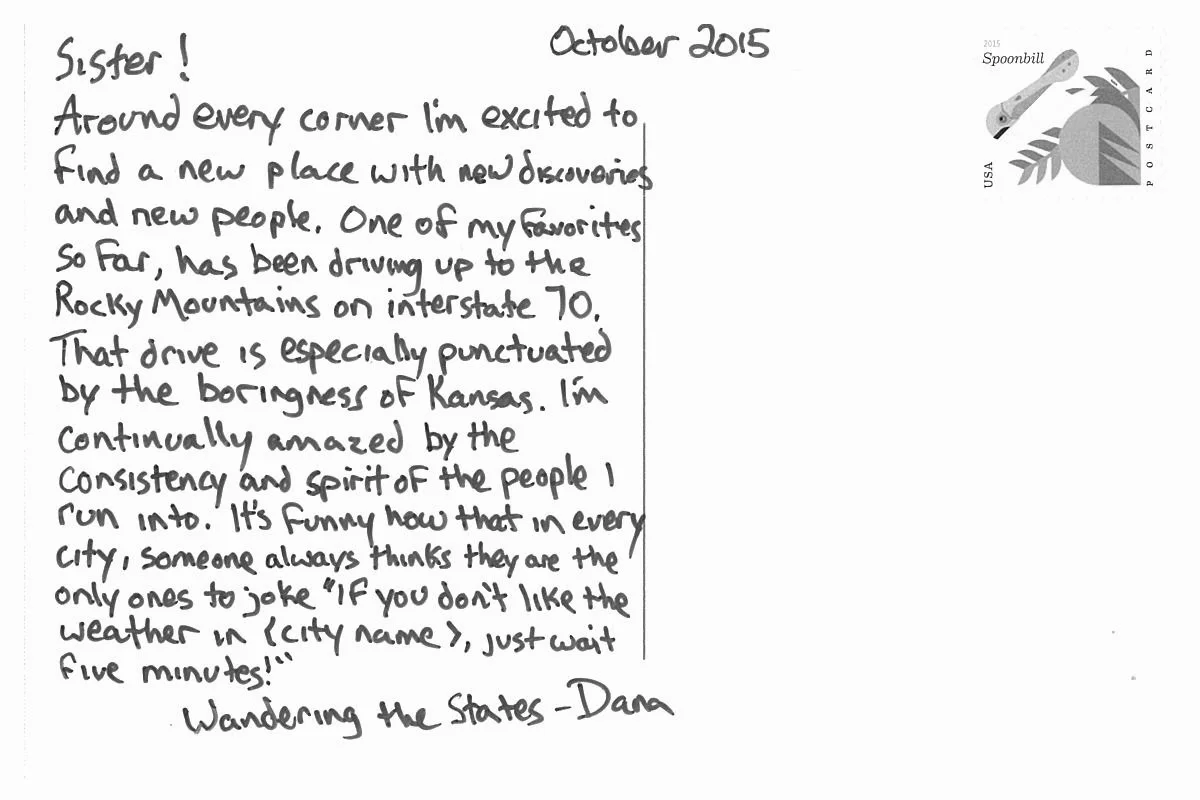 October 2015
Sister!
Around every corner I'm excited to
find a new place with new discoveries
and new people. One of my favorites
so far, has been driving up to the
Rocky Mountains on interstate 70.
That drive is especially punctuated
by the boringness of Kansas. I'm
continually amazed by the
consistency and spirit of the people I
run into. It's funny how that in every
city, someone always thinks they are the
only ones to joke "If you don't like the
weather in <city name>, just wait
five minutes!"
Wandering the States - Dana
2015
Spoonbill
USA
POSTCARD